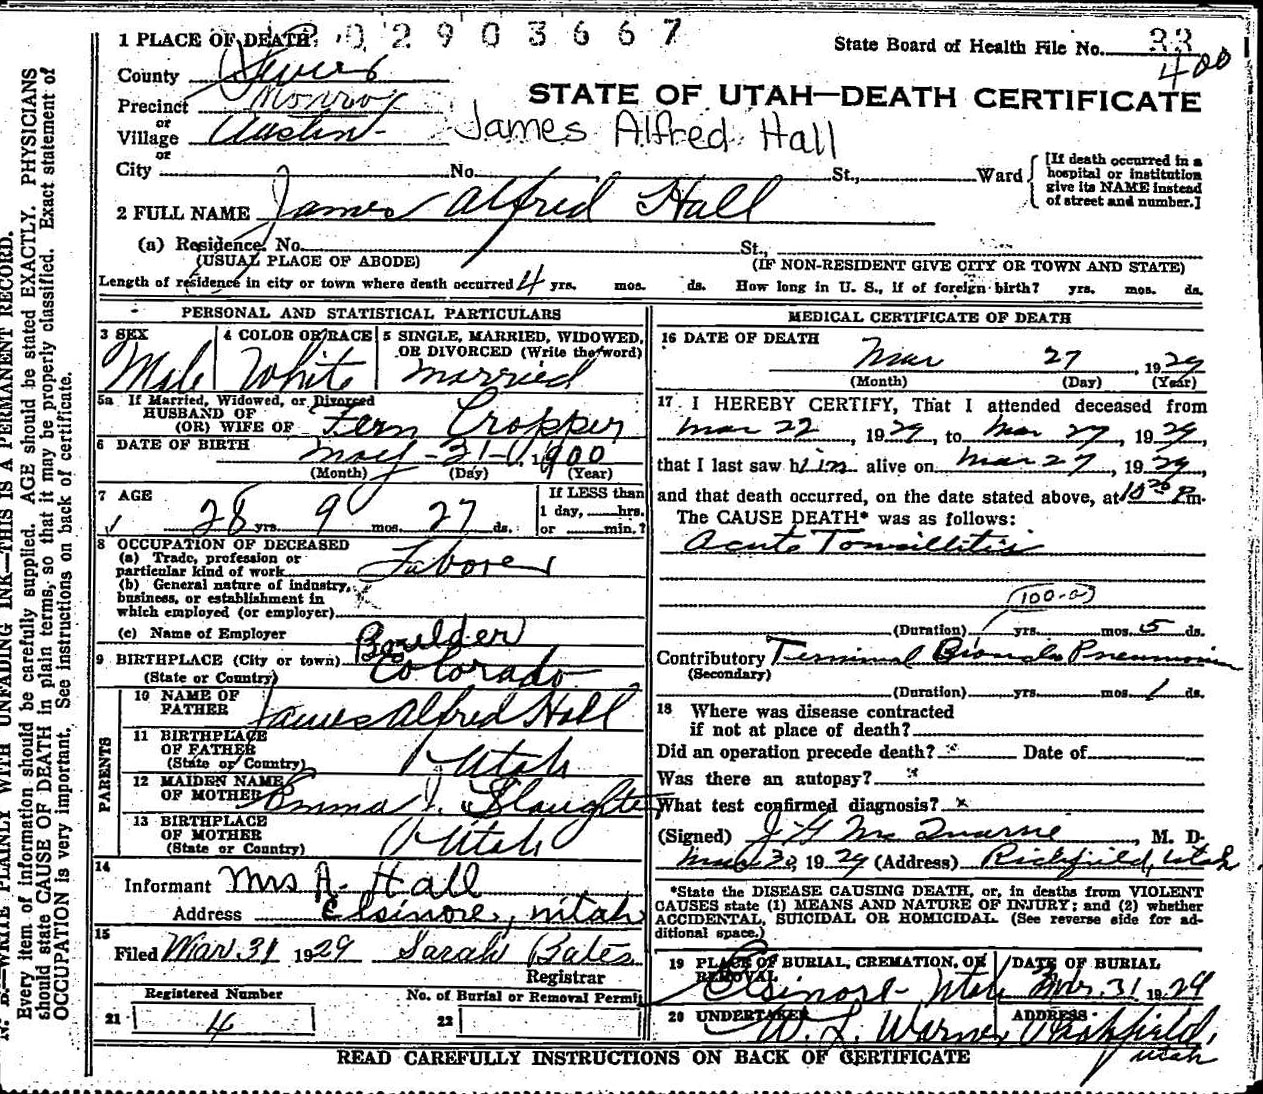 2 9 0 3 6 6 7
1 PLACE OF DEATH
State Board of Health File No. 33
400
County Sevier
STATE OF UTAH—DEATH CERTIFICATE
Precinct Monroe
or
Village Austin
James Alfred Hall
or
City No. St., Ward
[If death occurred in a
hospital or institution
give its NAME instead
of street and number.]
2 FULL NAME James Alfred Hall
(a) Residence, No. St.,
(USUAL PLACE OF ABODE) (IF NON-RESIDENT GIVE CITY OR TOWN AND STATE)
Length of residence in city or town where death occurred 4 yrs. mos. ds. How long in U. S., if of foreign birth? yrs. mos. ds.
PERSONAL AND STATISTICAL PARTICULARS
3 SEX 4 COLOR OR RACE 5 SINGLE, MARRIED, WIDOWED,
OR DIVORCED (Write the word)
Male White married
5a If Married, Widowed, or Divorced
HUSBAND OF
(OR) WIFE OF Fern Cropper
6 DATE OF BIRTH may-31-1900
(Month) (Day) (Year)
7 AGE If LESS than
1 day, hrs.
28 yrs. 9 mos. 27 ds. or min.?
8 OCCUPATION OF DECEASED
(a) Trade, profession or
particular kind of work Laborer
(b) General nature of industry,
business, or establishment in
which employed (or employer)
(c) Name of Employer
9 BIRTHPLACE (City or town) Boulder
(State or Country) Colorado
PARENTS
10 NAME OF
FATHER James Alfred Hall
11 BIRTHPLACE
OF FATHER
(State or Country) Utah
12 MAIDEN NAME
OF MOTHER Emma J. Slaughter
13 BIRTHPLACE
OF MOTHER
(State or Country) Utah
14
Informant Mrs A. Hall
Address Elsinore, Utah
15
Filed Mar. 31 1929 Sarah Bates
Registrar
Registered Number No. of Burial or Removal Permit
21 4 22
MEDICAL CERTIFICATE OF DEATH
16 DATE OF DEATH
Mar 27, 1929
(Month) (Day) (Year)
17 I HEREBY CERTIFY, That I attended deceased from
Mar 22, 1929, to Mar 27, 1929,
that I last saw him alive on Mar 27, 1929,
and that death occurred, on the date stated above, at 10 30 P m.
The CAUSE DEATH* was as follows:
Acute Tonsillitis
(100-a)
(Duration) yrs. mos. 5 ds.
Contributory Terminal Broncho Pneumonia
(Secondary)
(Duration) yrs. mos. 1 ds.
18 Where was disease contracted
if not at place of death?
Did an operation precede death? x Date of
Was there an autopsy? x
What test confirmed diagnosis? x
(Signed) J G Mc Quarrie, M. D.
Mar 30, 1929 (Address) Richfield, Utah
*State the DISEASE CAUSING DEATH, or, in deaths from VIOLENT
CAUSES state (1) MEANS AND NATURE OF INJURY; and (2) whether
ACCIDENTAL, SUICIDAL OR HOMICIDAL. (See reverse side for ad-
ditional space.)
19 PLACE OF BURIAL, CREMATION, OR
REMOVAL
DATE OF BURIAL
Elsinore- Utah Mar. 31 1929
20 UNDERTAKER ADDRESS
W. L. Warner Richfield,
Utah
READ CAREFULLY INSTRUCTIONS ON BACK OF CERTIFICATE
N. B.—WRITE PLAINLY WITH UNFADING INK—THIS IS A PERMANENT RECORD.
Every item of information should be carefully supplied. AGE should be stated EXACTLY. PHYSICIANS
should state CAUSE OF DEATH in plain terms, so that it may be properly classified. Exact statement of
OCCUPATION is very important. See instructions on back of certificate.